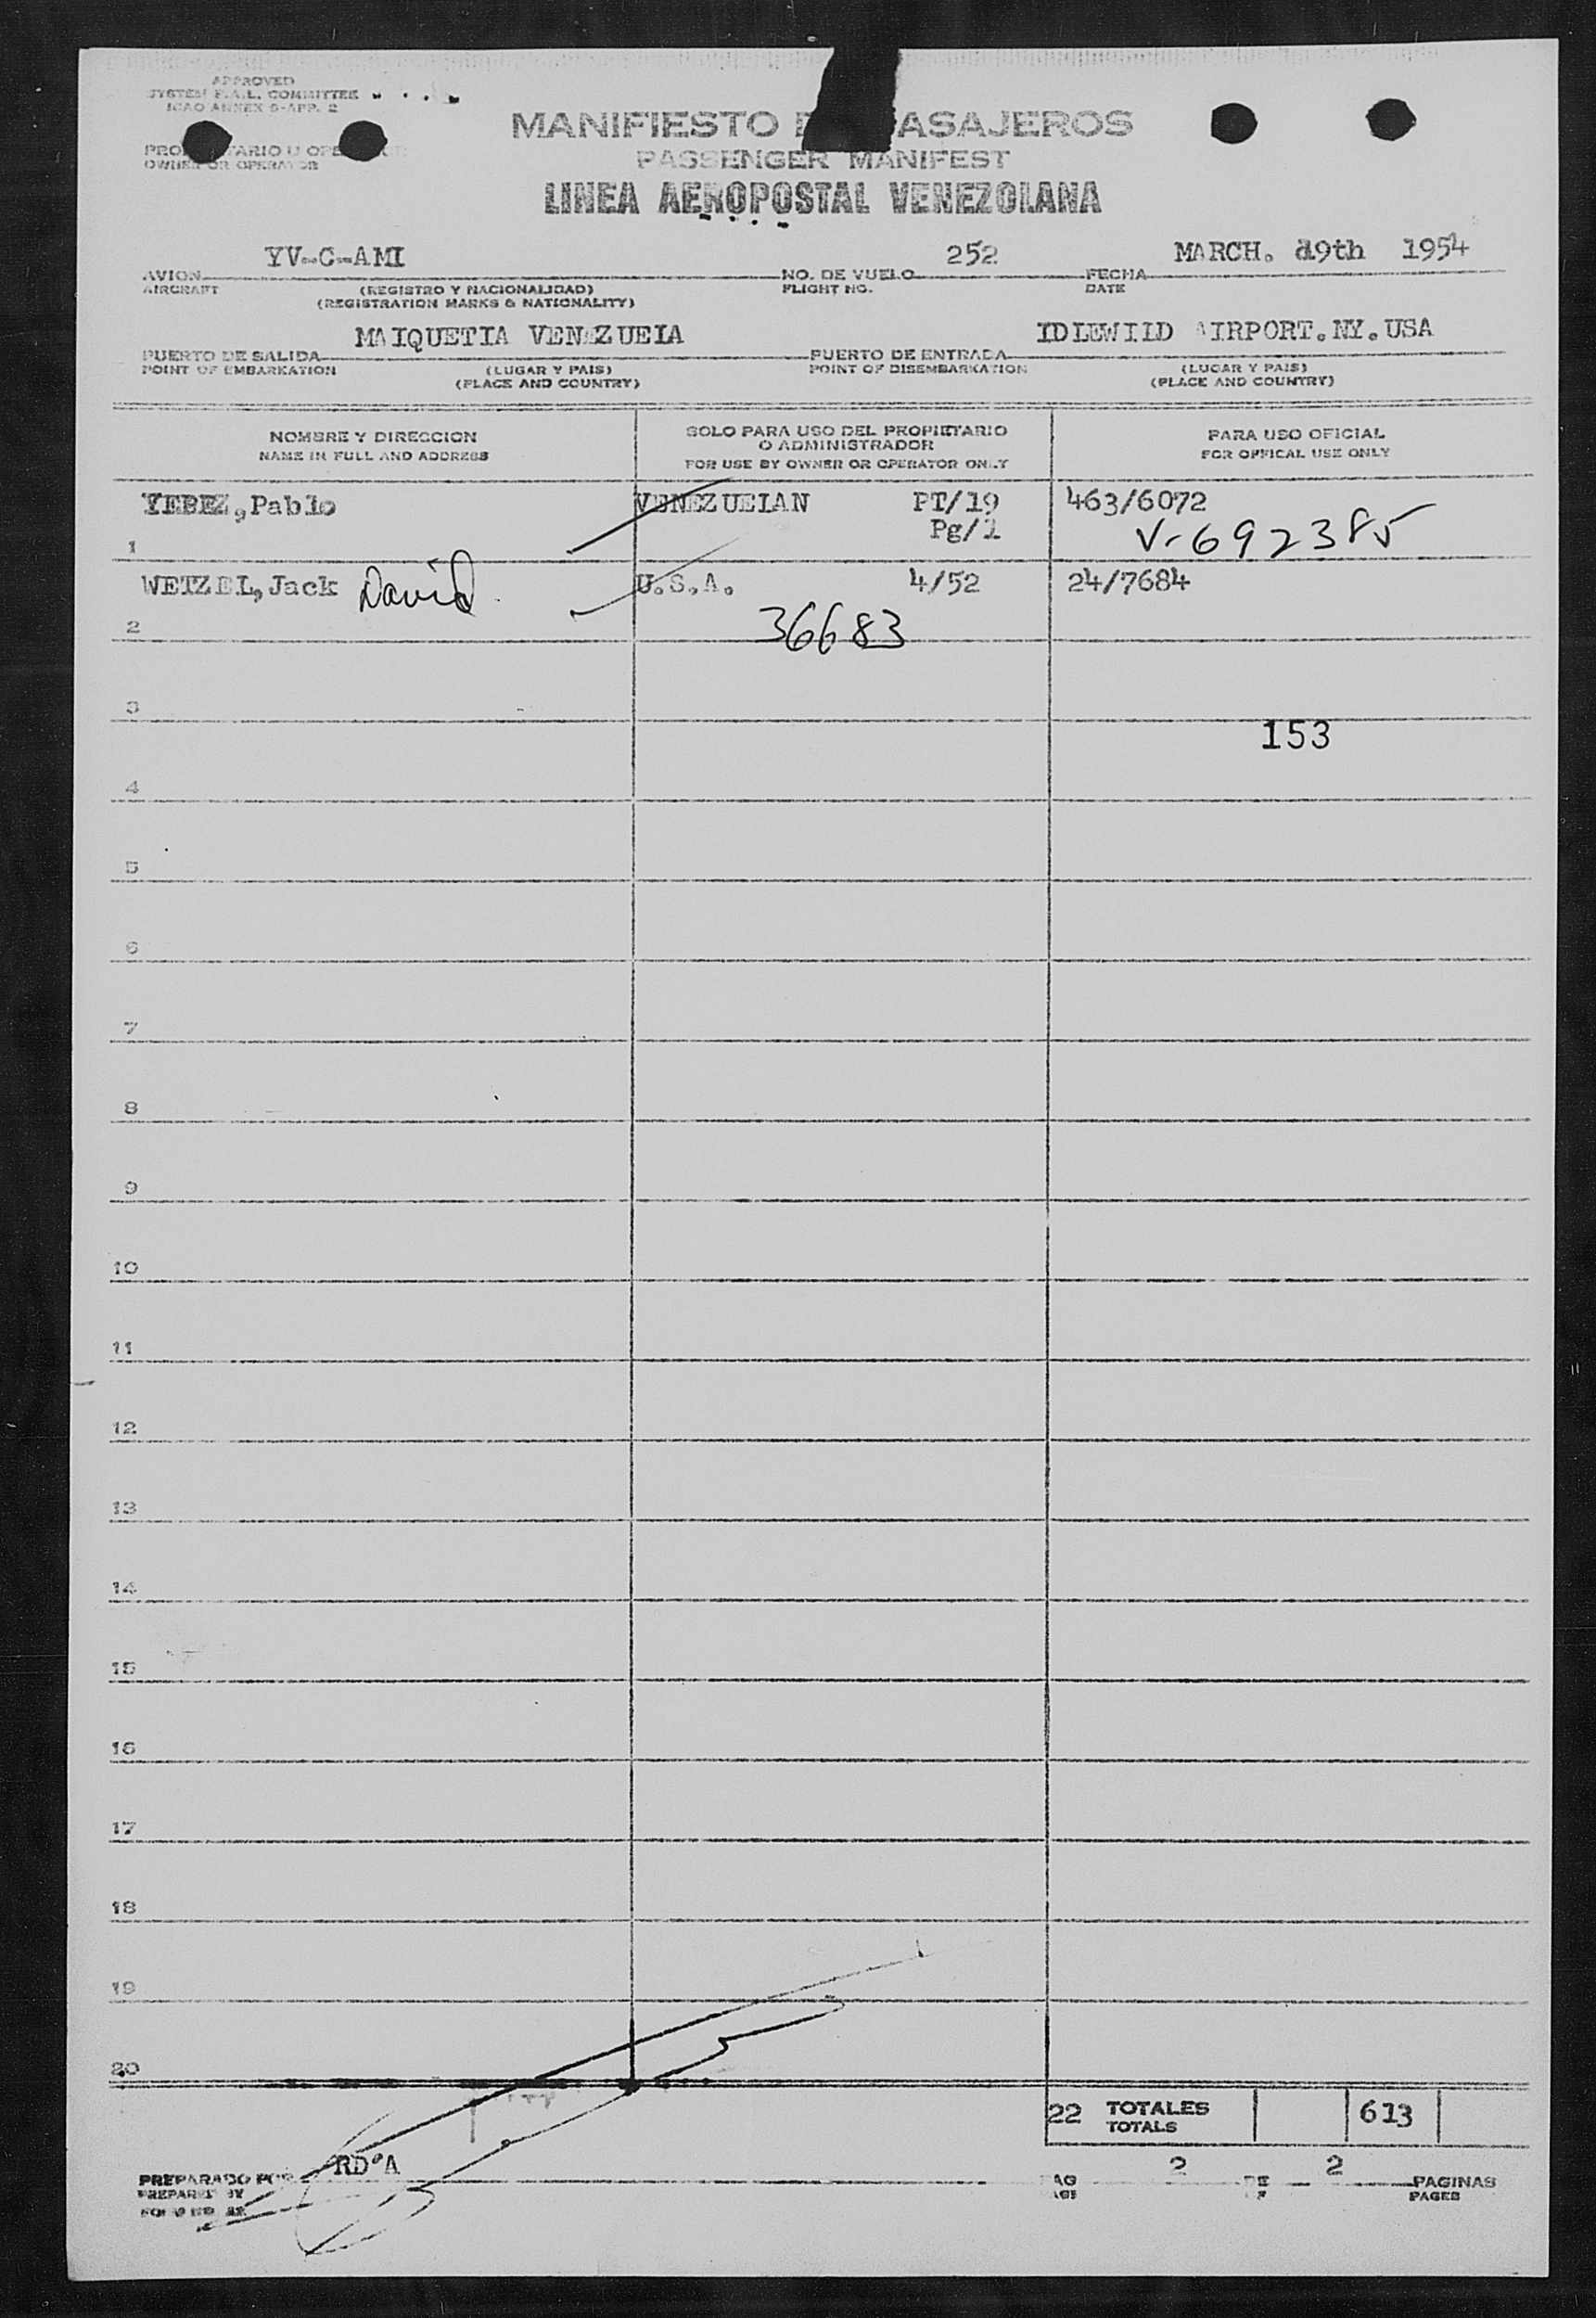 APPROVED
SYSTEM F.A.L. COMMITTEE
ICAO ANNEX 9-APP. 2
MANIFIESTO ASAJEROS
PASSENGER MANIFEST
OWNER OR OPERATOR
LINEA AEROPOSTAL VENEZOLANA
YV-C-AMI 252 MARCH. 19th 1954
AVION NO. DE VUELO FECHA
AIRCRAFT (REGISTRO Y NACIONALIDAD) FLIGHT NO. DATE
(REGISTRATION MARKS & NATIONALITY)
MAIQUETIA VENEZUELA IDLEWILD AIRPORT.NY.USA
PUERTO DE SALIDA PUERTO DE ENTRADA
POINT OF EMBARKATION (LUGAR Y PAIS) POINT OF DISEMBARKATION (LUGAR Y PAIS)
(PLACE AND COUNTRY) (PLACE AND COUNTRY)
NOMBRE Y DIRECCION SOLO PARA USO DEL PROPIETARIO PARA USO OFICIAL
O ADMINISTRADOR
NAME IN FULL AND ADDRESS FOR USE BY OWNER OR OPERATOR ONLY FOR OFFICAL USE ONLY
YEBEZ,Pablo VENEZUELAN PT/19 463/6072
Pg/1 V-692385
1
WETZEL,Jack David U.S.A. 4/52 24/7684
2 36683
3
153
4
5
6
7
8
9
10
11
12
13
14
15
16
17
18
19
20
22 TOTALES 613
TOTALS
RD°A 2 2
PREPARADO POR PAG DE PAGINAS
PREPARED BY PAGES